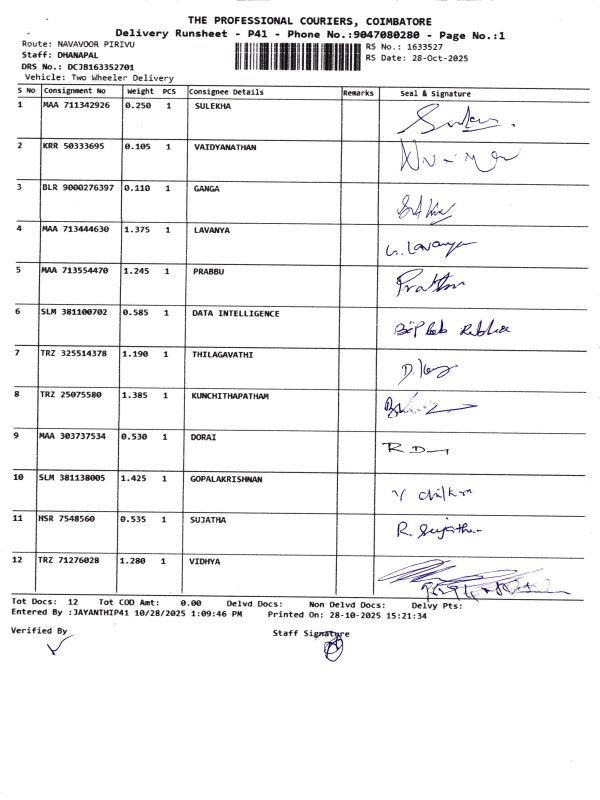 THE PROFESSIONAL COURIERS, COIMBATORE
Delivery Runsheet - P41 - Phone No.:9047080280 - Page No.:1
Route: NAVAVOOR PIRIVU RS No.: 1633527
Staff: DHANAPAL RS Date: 28-Oct-2025
DRS No.: DCJB163352701
Vehicle: Two Wheeler Delivery
S No Consignment No Weight PCS Consignee Details Remarks Seal & Signature
1 MAA 711342926 0.250 1 SULEKHA
2 KRR 50333695 0.105 1 VAIDYANATHAN
3 BLR 9000276397 0.110 1 GANGA
4 MAA 713444630 1.375 1 LAVANYA G. Lavanya
5 MAA 713554470 1.245 1 PRABBU
6 SLM 381100702 0.585 1 DATA INTELLIGENCE
7 TRZ 325514378 1.190 1 THILAGAVATHI
8 TRZ 25075580 1.385 1 KUNCHITHAPATHAM
9 MAA 303737534 0.530 1 DORAI
10 SLM 381138005 1.425 1 GOPALAKRISHNAN
11 HSR 7548560 0.535 1 SUJATHA R. Sujatha
12 TRZ 71276028 1.280 1 VIDHYA
Tot Docs: 12 Tot COD Amt: 0.00 Delvd Docs: Non Delvd Docs: Delvy Pts:
Entered By :JAYANTHIP41 10/28/2025 1:09:46 PM Printed On: 28-10-2025 15:21:34
Verified By Staff Signature